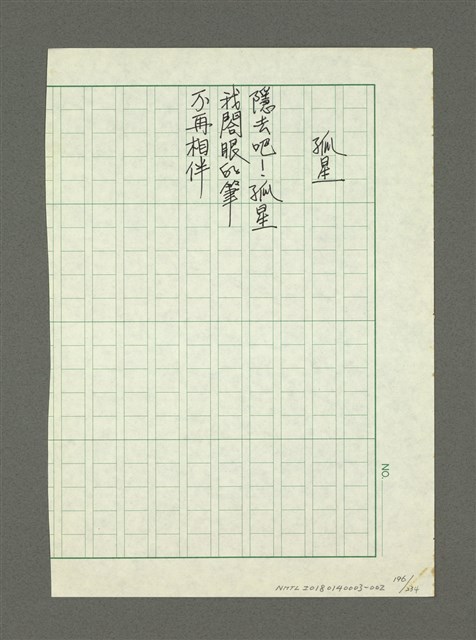 孤星
隱去吧！孤星
我閤眼的筆
不再相伴
NO.
NMTL20180140003-002
196/234